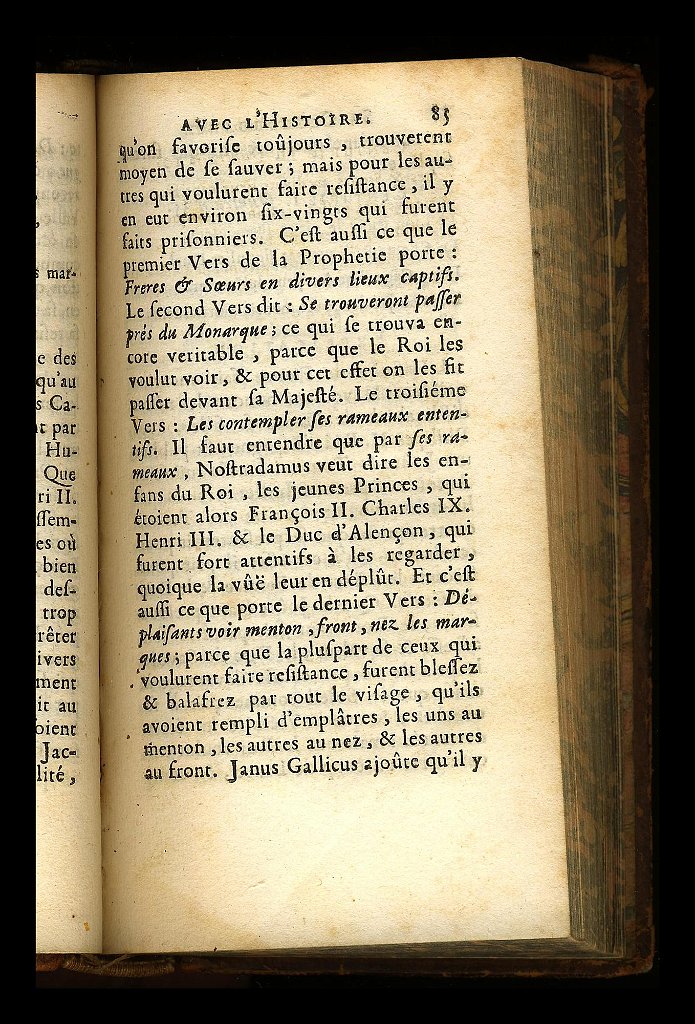 s mar-
e des
qu'au
s Ca-
t par
Hu-
Que
ri II.
ſſem-
es où
bien
deſ-
trop
rêter
ivers
ment
it au
oient
Jac-
lité,
AVEC L'HISTOIRE. 85
qu'on favoriſe toûjours, trouverent
moyen de ſe ſauver; mais pour les au-
tres qui voulurent faire reſiſtance, il y
en eut environ ſix-vingts qui furent
faits priſonniers. C'eſt auſſi ce que le
premier Vers de la Prophetie porte :
Freres & Sœurs en divers lieux captifs.
Le ſecond Vers dit : Se trouveront paſſer
prés du Monarque; ce qui ſe trouva en-
core veritable, parce que le Roi les
voulut voir, & pour cet effet on les fit
paſſer devant ſa Majeſté. Le troiſiéme
Vers : Les contempler ſes rameaux enten-
tifs. Il faut entendre que par ſes ra-
meaux, Noſtradamus veut dire les en-
fans du Roi, les jeunes Princes, qui
étoient alors François II. Charles IX.
Henri III. & le Duc d'Alençon, qui
furent fort attentifs à les regarder,
quoique la vûë leur en déplût. Et c'eſt
auſſi ce que porte le dernier Vers : Dé-
plaiſants voir menton, front, nez les mar-
ques; parce que la pluſpart de ceux qui
voulurent faire reſiſtance, furent bleſſez
& balafrez par tout le viſage, qu'ils
avoient rempli d'emplâtres, les uns au
menton, les autres au nez, & les autres
au front. Janus Gallicus ajoûte qu'il y